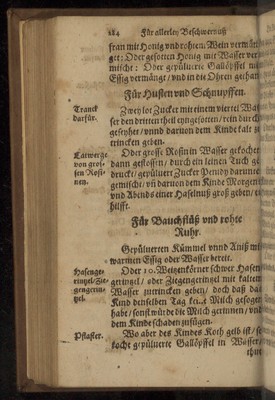 184 Für allerley Beschwernuß
fran mit Honig und rohten Wein vermän-
get: Oder gesotten Honig mit Wasser ver
mischt: Oder gepülvert Gallöpffel mit
Essig vermänge / und in die Ohren gethan
Für Husten und Schnupffen.
Tranck darfür.
Zwey lot Zucker mit einem viertel Was
ser den dritten theil eyngesotten / rein durch
geseyhet / unnd darvon dem Kinde kalt zu
trincken geben.
Latwerge von grossen Rosinen.
Oder grosse Rosin in Wasser gekochet
dann gestossen / durch ein leinen Tuch ge
druckt / gepülvert Zucker Penidy darunter
gemischt / und darvon dem Kinde Morgens
und Abends einer Haselnuß groß geben / es
hilfft.
Für Bauchflüß vnd rohte
Ruhr.
Gepülverten Kümmel vnnd Aniß mit
warmen Essig oder Wasser bereit.
Hasengerintzel / Ziegengerintzel.
Oder 10. Weitzenkörner schwer Hasen
geringel / oder Ziegengeringel mit kaltem
Wasser zutrincken geben / doch daß das
Kind denselben Tag keine Milch gesogen
habe / sonst würde die Milch gerinnen / und
dem Kinde schaden zufügen.
Pflaster.
Wo aber des Kindes Koth gelb ist / so
kocht gepülverte Gallöpffel in Wasser /